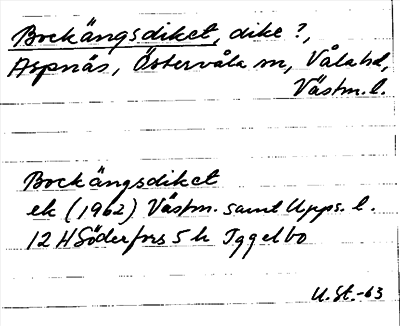 Bockängsdiket, dike?,
Aspnäs, Östervåla sn, Våla hd,
Västm. l.
Bockängsdiket
ek (1962) Västm. samt Upps. l.
12 H Söderfors 5 h Iggelbo
U. St. -63